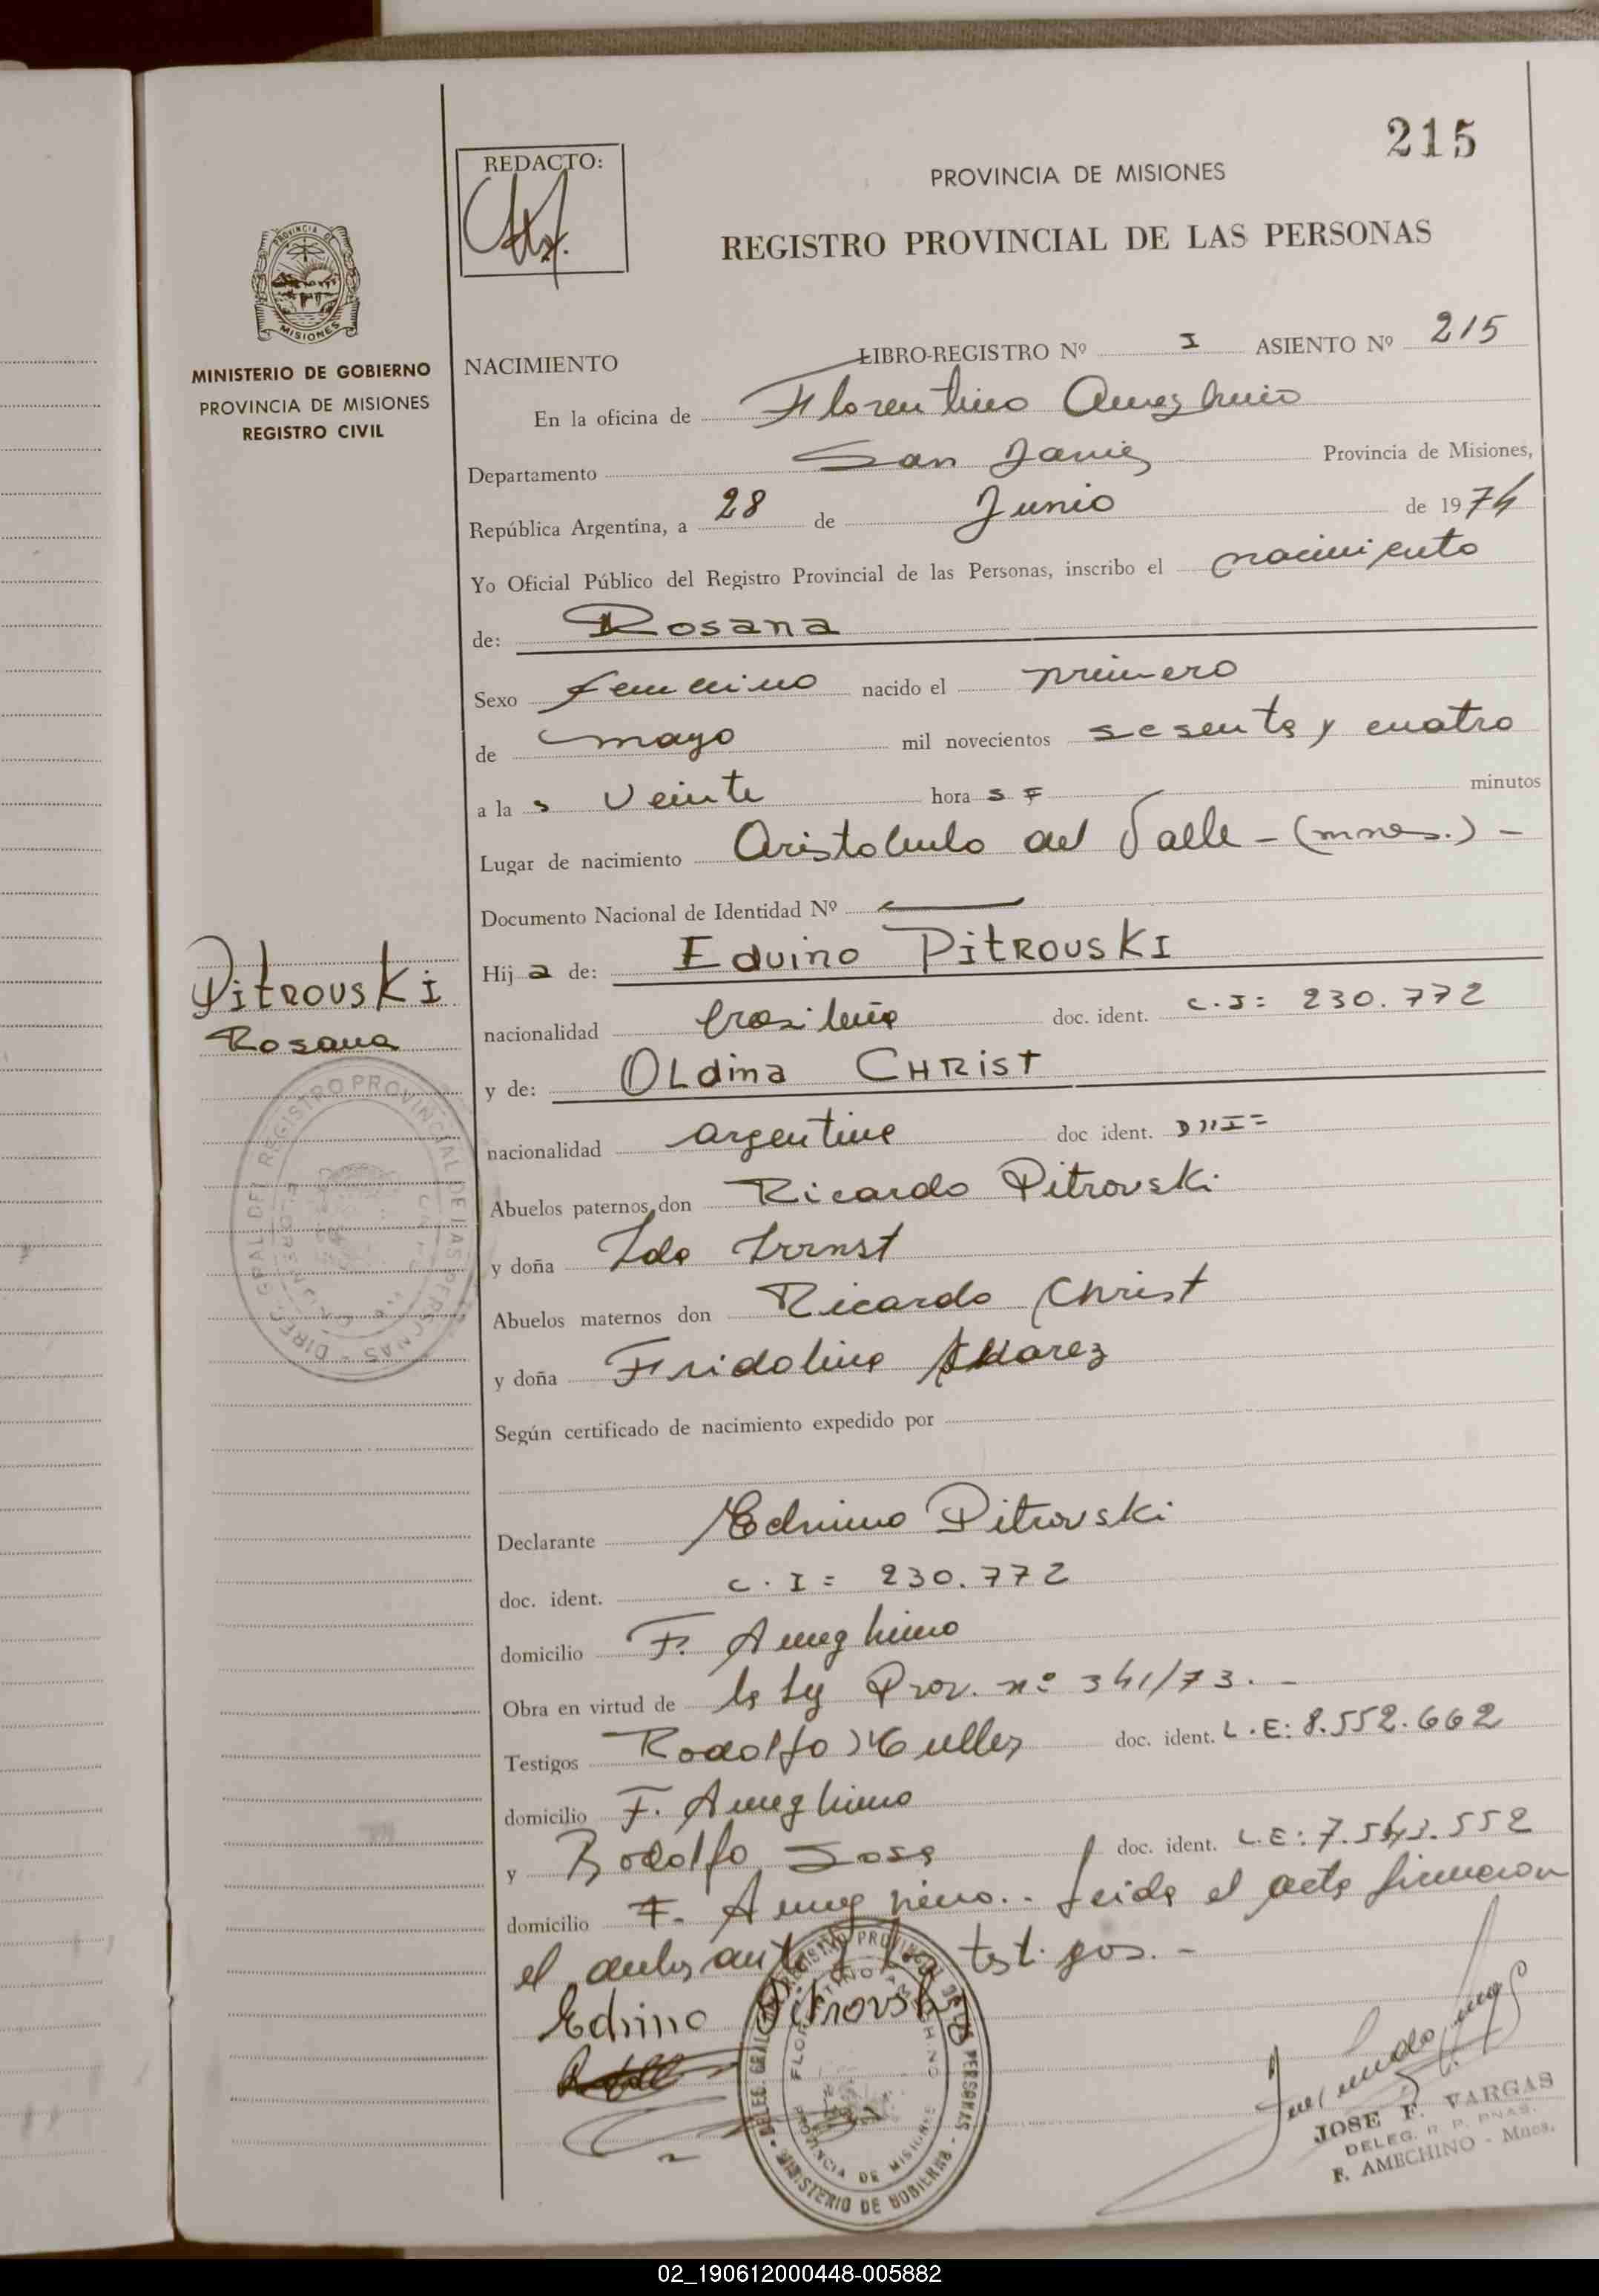 215
REDACTO:
PROVINCIA DE MISIONES
REGISTRO PROVINCIAL DE LAS PERSONAS
PROVINCIA DE
MISIONES
MINISTERIO DE GOBIERNO
PROVINCIA DE MISIONES
REGISTRO CIVIL
NACIMIENTO LIBRO-REGISTRO Nº I ASIENTO Nº 215
En la oficina de Florentino Ameghino
Departamento San Javier Provincia de Misiones,
República Argentina, a 28 de Junio de 1974
Yo Oficial Público del Registro Provincial de las Personas, inscribo el nacimiento
de: Rosana
Sexo femenino nacido el primero
de mayo mil novecientos sesenta y cuatro
a la s veinte hora s minutos
Lugar de nacimiento Aristobulo del Valle - (mnes.) -
Documento Nacional de Identidad Nº
Hij a de: Eduino PitROUSKI
Pitrouski
Rosana
nacionalidad brasileña doc. ident. C.I: 230.772
y de: OLdina CHRist
nacionalidad argentina doc ident. DNI=
Abuelos paternos don Ricardo Pitrovski
y doña Ida
Abuelos maternos don Ricardo Christ
y doña Fridolina
Según certificado de nacimiento expedido por
Declarante Edvino Pitrovski
doc. ident. C.I= 230.772
domicilio F. Ameghino
Obra en virtud de la Ley Prov. nº 341/73. -
Testigos Rodolfo Muller doc. ident. L.E: 8.552.662
domicilio F. Ameghino
y Rodolfo Sosa doc. ident. L.E: 7.543.552
domicilio F. Ameghino.. Leida el acta firmaron
el declarante y los testigos. -
Edvino Pitrovski
DIREC. GRAL. DEL REGISTRO PROVINCIAL DE LAS PERSONAS
DELEG. GRAL. REGISTRO PROVINCIAL DE LAS PERSONAS
FLORENTINO AMEGHINO
PROVINCIA DE MISIONES
MINISTERIO DE GOBIERNO
JOSE F. VARGAS
DELEG. R. P. PNAS.
F. AMECHINO - Mnes.
02_190612000448-005882